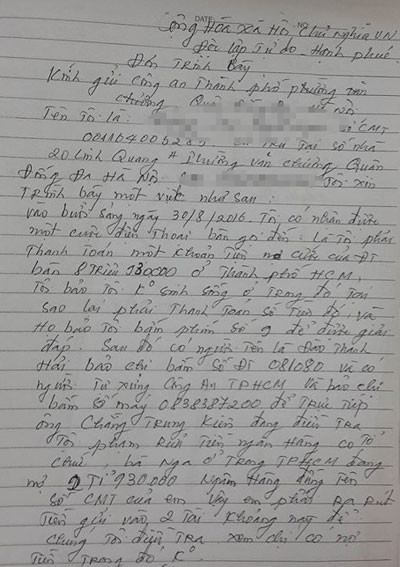 DATE NO
Cộng Hòa Xã Hội Chủ nghĩa VN
Độc lập Tự do - Hạnh phúc
Đơn Trình Bày
Kính gửi công an Thành phố phường văn
chương Quận
Tên Tôi là : số CMT
Trú Tại số nhà
20 Linh Quang Phường văn chương Quận
Đống Đa Hà Nội. Tôi xin
Trình bày một việc như sau :
vào buổi sáng ngày 30/8/2016. Tôi có nhận được
một cuộc điện Thoại bàn gọi đến. là Tôi phải
Thanh Toán một khoản Tiền nợ cước của ĐT
bàn 8 Triệu 930000 ở Thành phố HCM,
Tôi bảo Tôi K° sinh sống ở Trong đó Tại
sao lại phải Thanh Toán số Tiền đó, và
Họ bảo Tôi bấm phím số 9 để được giải
đáp. Sau đó có người Tên là Đào Thanh
Hải bảo chị bấm số ĐT 081080 và có
người Tự xưng Công An TPHCM và bảo chị
bấm số máy 0838387200 để Trực Tiếp
ông Chằng Trung Kiên đang điều Tra
Tội phạm Rửa Tiền ngân Hàng có Tổ
chức, bà Nga ở Trong TPHCM đang
nợ 9 Tỉ 930.000 Ngân Hàng đứng Tên
số CMT của em vậy em phải Ra Rút
Tiền gửi vào 2 Tài Khoảng này để
chúng Tôi điều Tra xem chị có nợ
Tiền Trong đó K°.